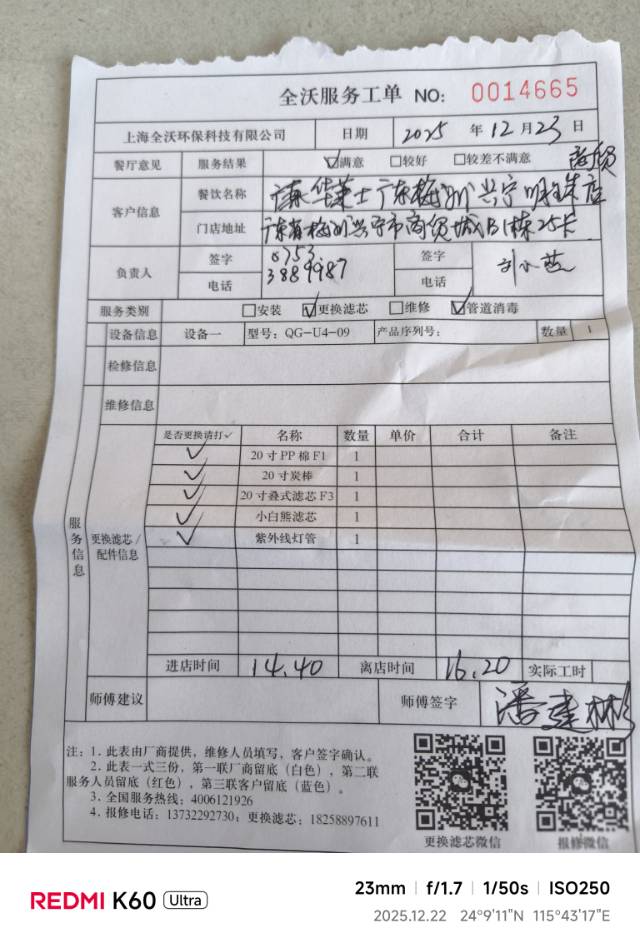 全沃服务工单 NO: 0014665
上海全沃环保科技有限公司 日期 2025 年 12 月 23 日
餐厅意见 服务结果 ☑满意 □较好 □较差不满意
商贸
客户信息 餐饮名称 华莱士广东梅州兴宁明珠店
门店地址 广东省梅州兴宁市商贸城B1栋25卡
负责人 签字 签字 刘小燕
电话 0753 3889987 电话
服务类别 □安装 ☑更换滤芯 □维修 ☑管道消毒
设备信息 设备一 型号: QG-U4-09 产品序列号: 数量 1
检修信息
维修信息
服务信息 更换滤芯/配件信息
是否更换请打✓ 名称 数量 单价 合计 备注
✓ 20寸PP棉F1 1
✓ 20寸炭棒 1
✓ 20寸叠式滤芯F3 1
✓ 小白熊滤芯 1
✓ 紫外线灯管 1
进店时间 14.40 离店时间 16.20 实际工时
师傅建议 师傅签字 潘建彬
注: 1. 此表由厂商提供, 维修人员填写, 客户签字确认。
2. 此表一式三份, 第一联厂商留底 (白色), 第二联
服务人员留底 (红色), 第三联客户留底 (蓝色)。
3. 全国服务热线: 4006121926
4. 报修电话: 13732292730; 更换滤芯: 18258897611
更换滤芯微信 报修微信
REDMI K60 Ultra
23mm | f/1.7 | 1/50s | ISO250
2025.12.22 24°9'11"N 115°43'17"E